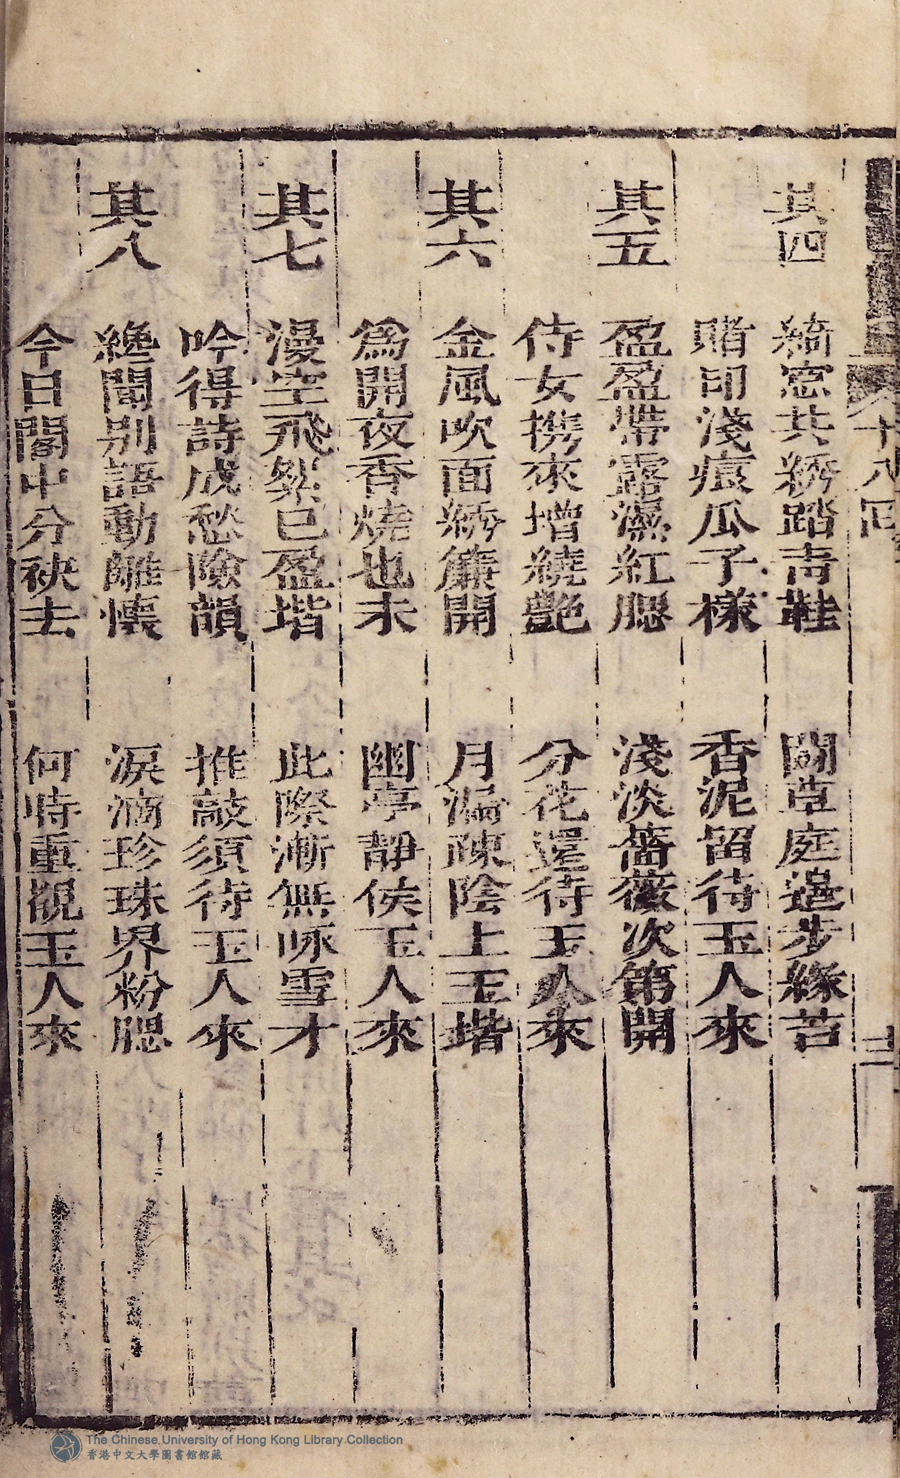 其四
綺窓共綉踏青鞋 鬪草庭邉步緣苔
賭印淺痕瓜子樣 香泥留待玉人來
其五
盈盈帶露濕紅腮 淺淡薔薇次第開
侍女携來增繞艷 分花還待玉人來
其六
金風吹面綉簾開 月漏疎陰上玉堦
爲開夜香燒也未 幽亭靜俟玉人來
其七
漫空飛絮已盈堦 此際漸無咏雪才
吟得詩成愁險韻 推敲須待玉人來
其八
纔聞别語動離懷 淚滴珍珠界粉腮
今日閣中分袂去 何時重覩玉人來
十八回
The Chinese University of Hong Kong Library Collection
香港中文大學圖書館館藏